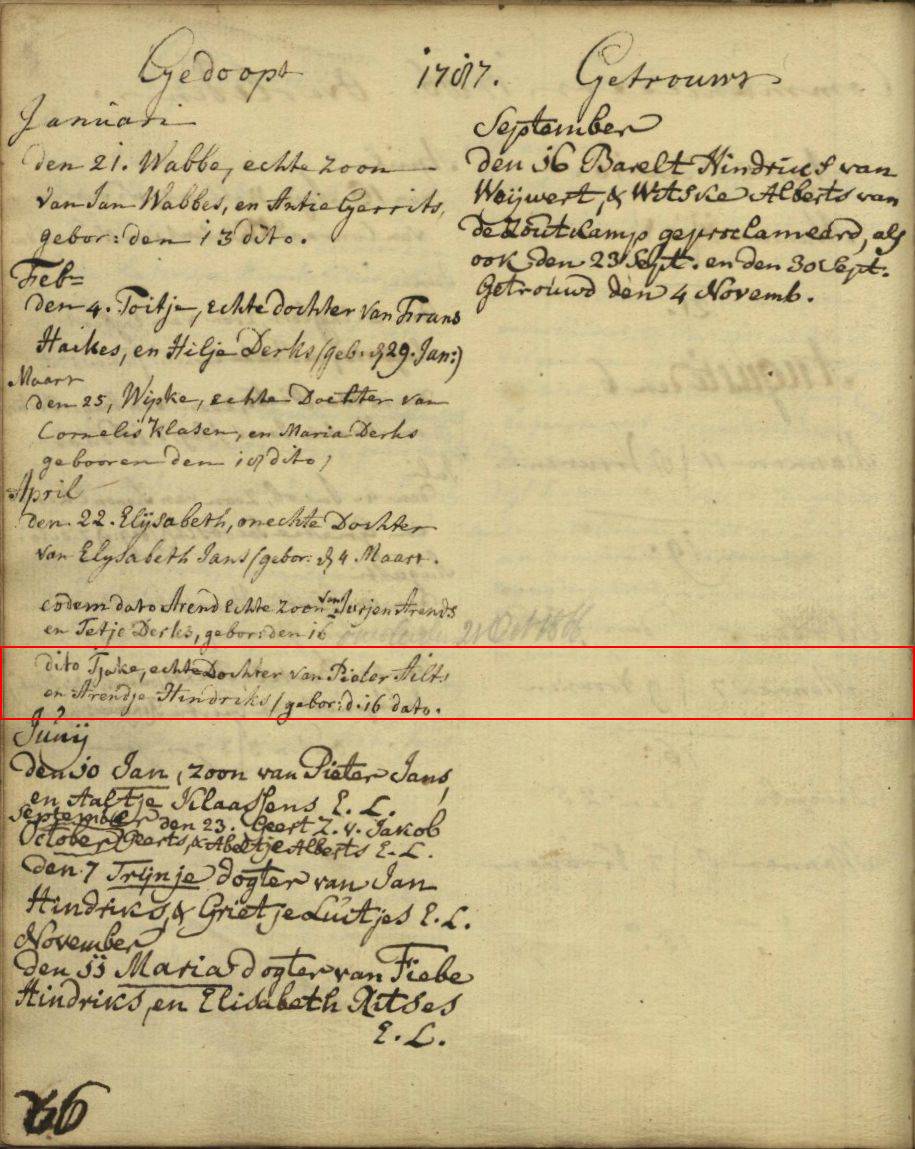 Gedoopt 1787. Getrouwt
Januari
den 21. Wabbe, echte zoon
van Jan Wabbes, en Antie Gerrits,
gebor: den 13 dito.
Feb=
den 4. Toitje, echte dochter van Frans
Haikes, en Hilje Derks (geb. d 29. Jan:)
Maart
den 25, Wipke, echte Dochter van
Cornelis Klasen, en Maria Derks
gebooren den 18 dito,
April
den. 22. Elysabeth, onechte Dochter
van Elysabeth Jans (gebor: d 4 Maart.
eodem dato Arend Echte zoon van Jurjen Arends
en Tetje Derks, gebor: den 16
21 Oct 1866
dito Tjake, echte Dochter van Pieter Ailts
en Arendje Hindriks (gebor: d. 16 dato.
Junij
den 10 Jan, zoon van Pieter Jans,
en Aaltje Klaassens E. L.
September den 23. Geert Z. v. Jakob
October Geerts, & Abeltje Alberts E. L.
den 7 Trijnje dogter van Jan
Hindriks, & Grietje Luitjes E. L.
November
den 11 Maria dogter van Fiebe
Hindriks, en Elisabeth Ritses
E. L.
September
den 16 Barelt Hindriks van
Weijwert, & Witske Alberts van
de Zoutkamp geproclameerd, als
ook den 23 Sept. en den 30 Sept.
Getrouwd den 4 Novemb.
66